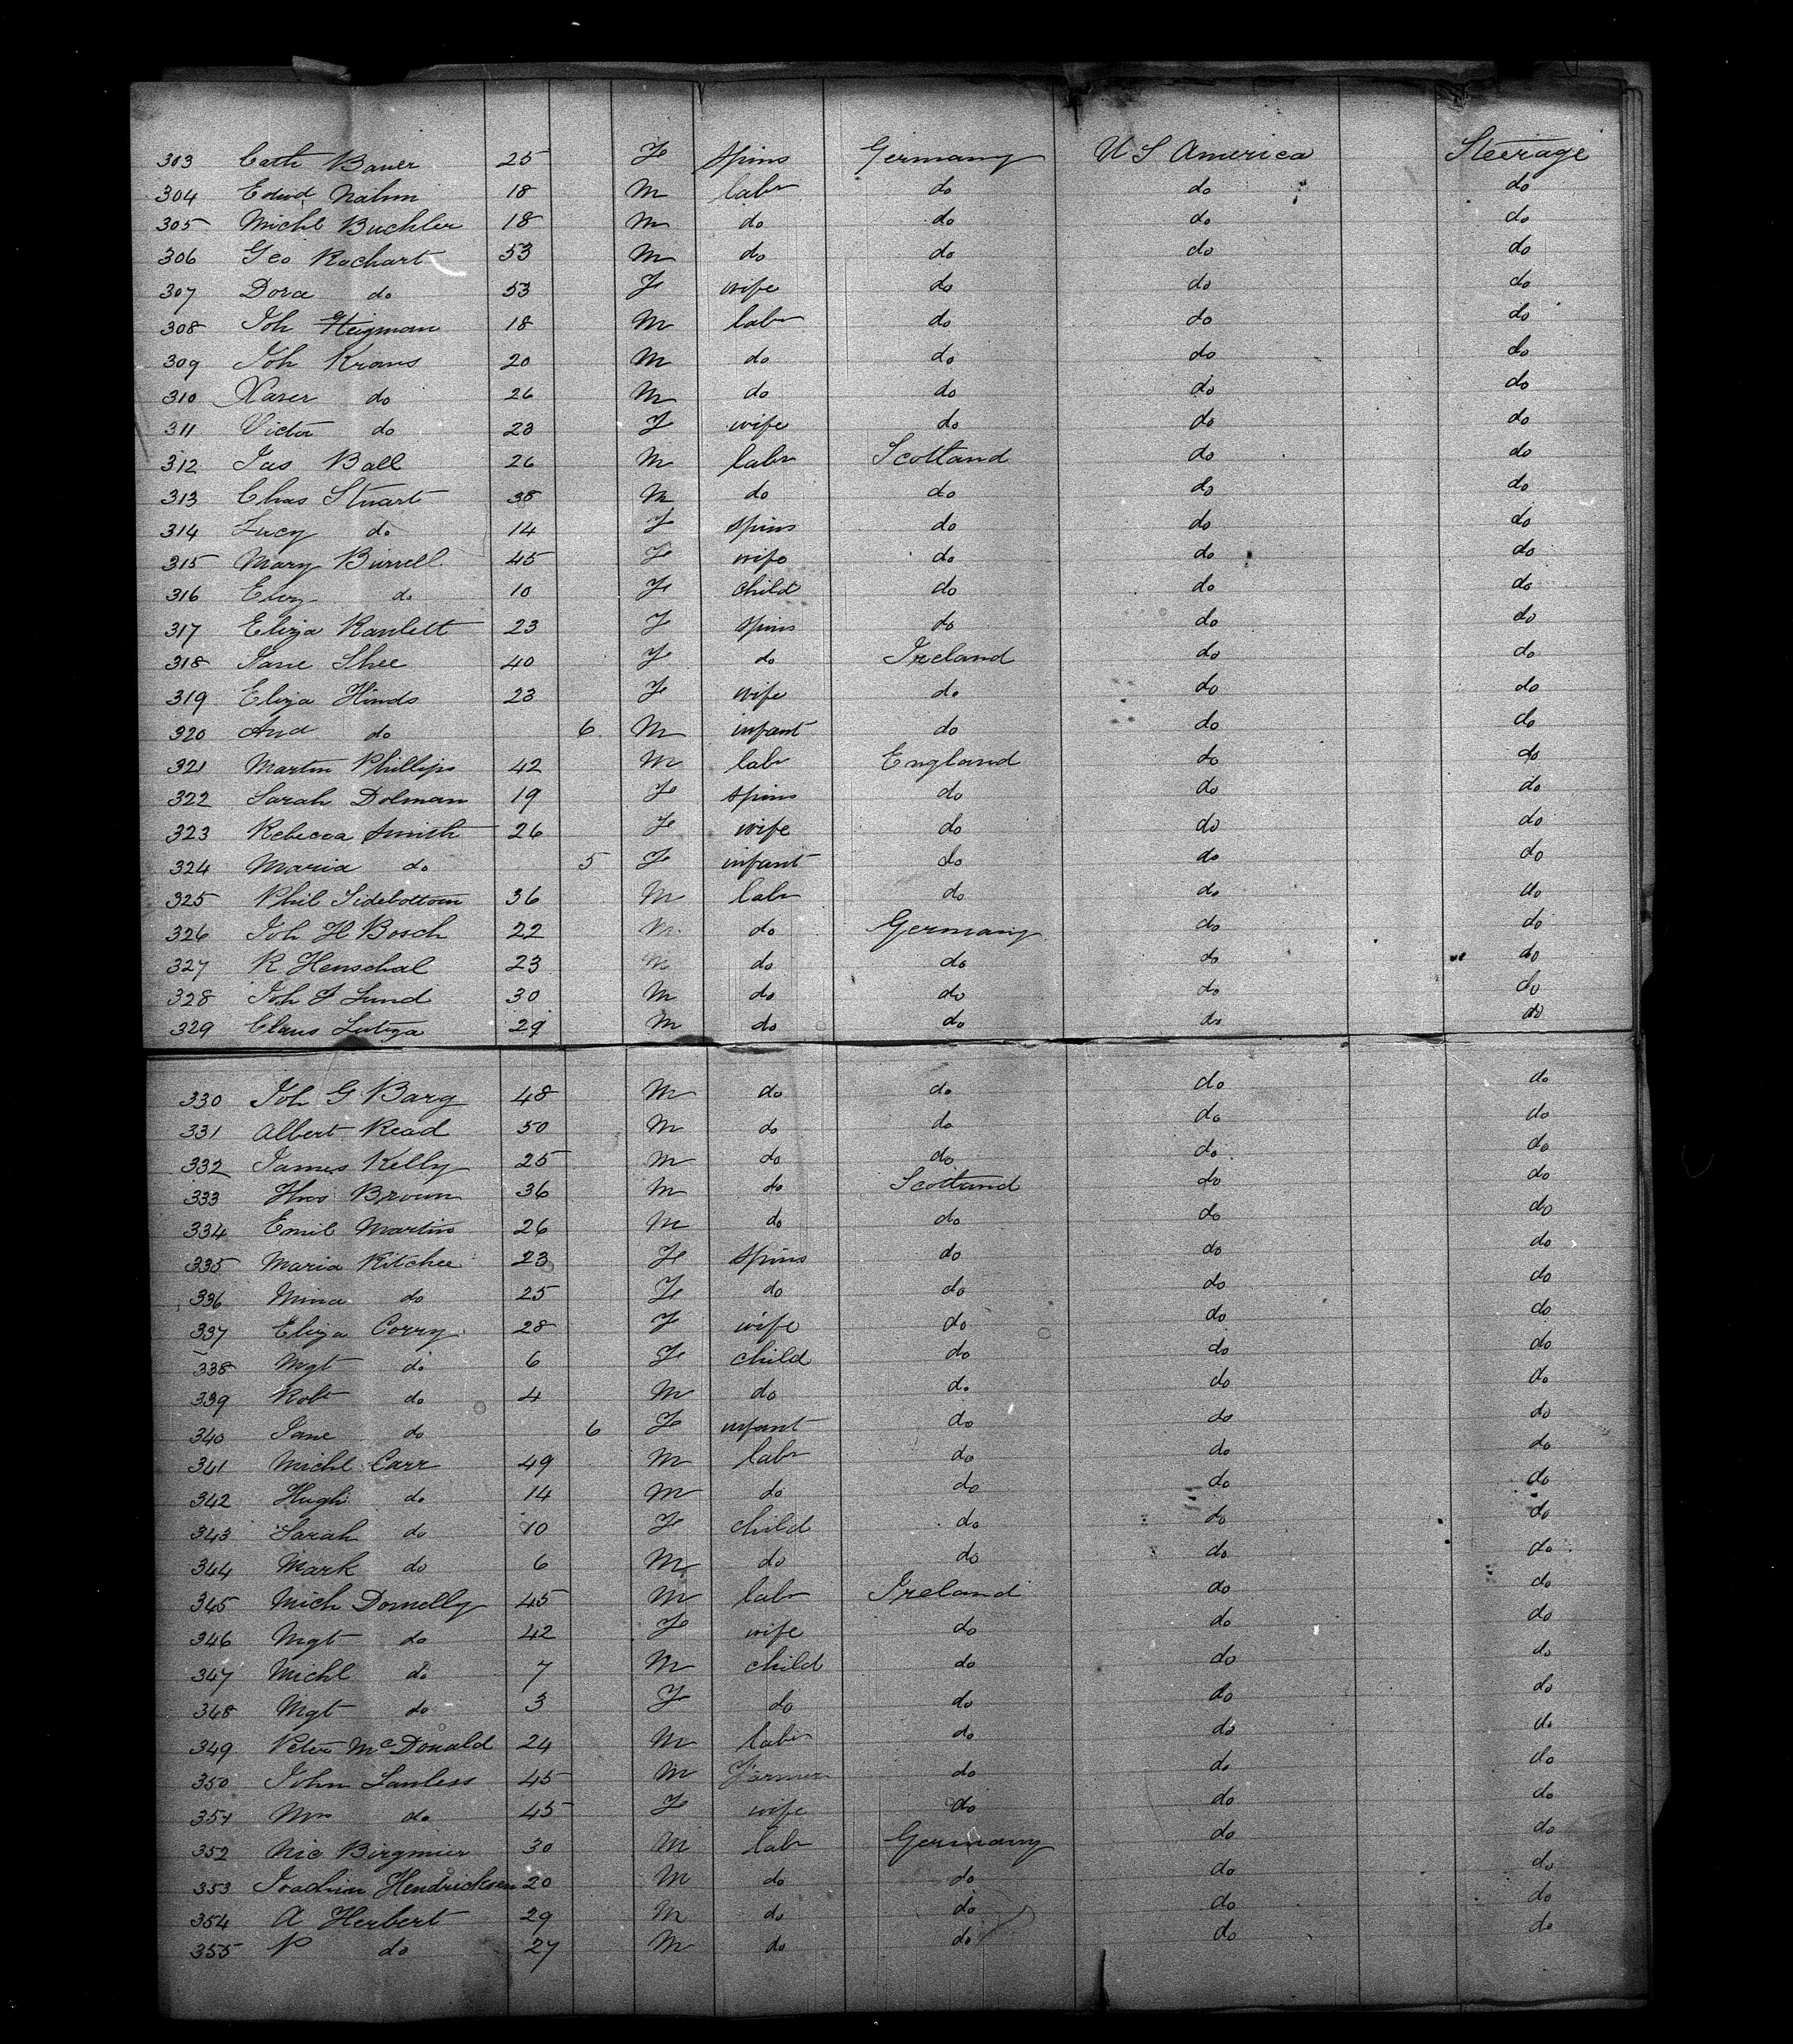 303 Cath Bauer 25 F spins Germany U S America Steerage
304 Edwd Nahm 18 M labr do do do
305 Michl Buchler 18 M do do do do
306 Geo Rochart 53 M do do do do
307 Dora do 53 F wife do do do
308 Joh Heigman 18 M labr do do do
309 Joh Krans 20 M do do do do
310 Xaver do 26 M do do do do
311 Victor do 23 F wife do do do
312 Jas Ball 26 M labr Scotland do do
313 Chas Stuart 38 M do do do do
314 Lucy do 14 F spins do do do
315 Mary Burrell 45 F wife do do do
316 Eliz do 10 F child do do do
317 Eliza Ranlett 23 F spins do do do
318 Jane Shee 40 F do Ireland do do
319 Eliza Hinds 23 F wife do do do
320 And do 6 M infant do do do
321 Martin Phillips 42 M labr England do do
322 Sarah Dolman 19 F spins do do do
323 Rebecca Smith 26 F wife do do do
324 Maria do 5 F infant do do do
325 Phil Sidebottom 36 M labr do do do
326 Joh H Bosch 22 M do Germany do do
327 R Henschal 23 M do do do do
328 Joh F Lund 30 M do do do do
329 Claus 29 M do do do do
330 Joh G Barg 48 M do do do do
331 Albert Read 50 M do do do do
332 James Kelly 25 M do do do do
333 Thos Brown 36 M do Scotland do do
334 Emil Martin 26 M do do do do
335 Maria Ritchie 23 F spins do do do
336 Mina do 25 F do do do do
337 Eliza Corry 28 F wife do do do
338 Mgt do 6 F child do do do
339 Robt do 4 M do do do do
340 Jane do 6 F infant do do do
341 Michl Carr 49 M labr do do do
342 Hugh do 14 M do do do do
343 Sarah do 10 F child do do do
344 Mark do 6 M do do do do
345 Mich Donnelly 45 M labr Ireland do do
346 Mgt do 42 F wife do do do
347 Michl do 7 M child do do do
348 Mgt do 3 F do do do do
349 Peter McDonald 24 M labr do do do
350 John Lawless 45 M Farmer do do do
351 Mrs do 45 F wife do do do
352 Nic Birgmier 30 M labr Germany do do
353 Joachim Hendricksen 20 M do do do do
354 A Herbert 29 M do do do do
355 P do 27 M do do do do